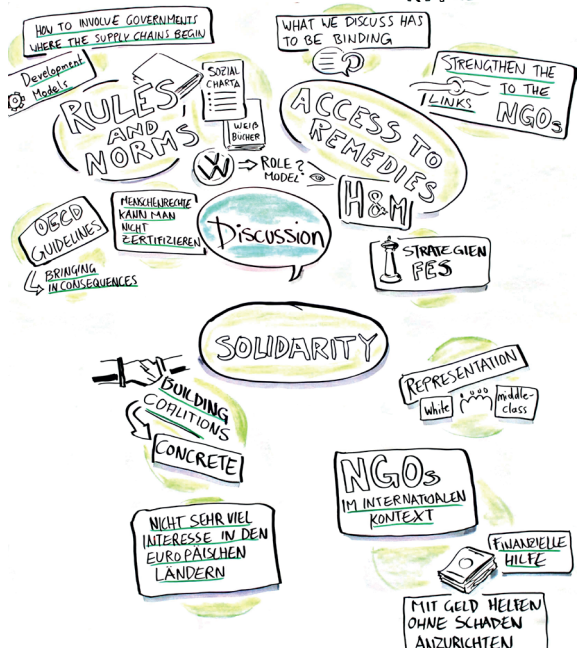 HOW TO INVOLVE GOVERNMENTS
WHERE THE SUPPLY CHAINS BEGIN
Development
Models
RULES
AND
NORMS
SOZIAL
CHARTA
WEIß
BÜCHER
WHAT WE DISCUSS HAS
TO BE BINDING
ACCESS TO
REMEDIES
STRENGTHEN THE
LINKS TO THE
NGOs
VW
ROLE
MODEL ?
H&M
OECD
GUIDELINES
BRINGING
IN CONSEQUENCES
MENSCHENRECHTE
KANN MAN
NICHT
ZERTIFIZIEREN
Discussion
STRATEGIEN
FES
SOLIDARITY
BUILDING
COALITIONS
CONCRETE
REPRESENTATION
white
middle-
class
NICHT SEHR VIEL
INTERESSE IN DEN
EUROPÄISCHEN
LÄNDERN
NGOs
IM INTERNATIOALEN
KONTEXT
FINANZIELLE
HILFE
MIT GELD HELFEN
OHNE SCHADEN
ANZURICHTEN